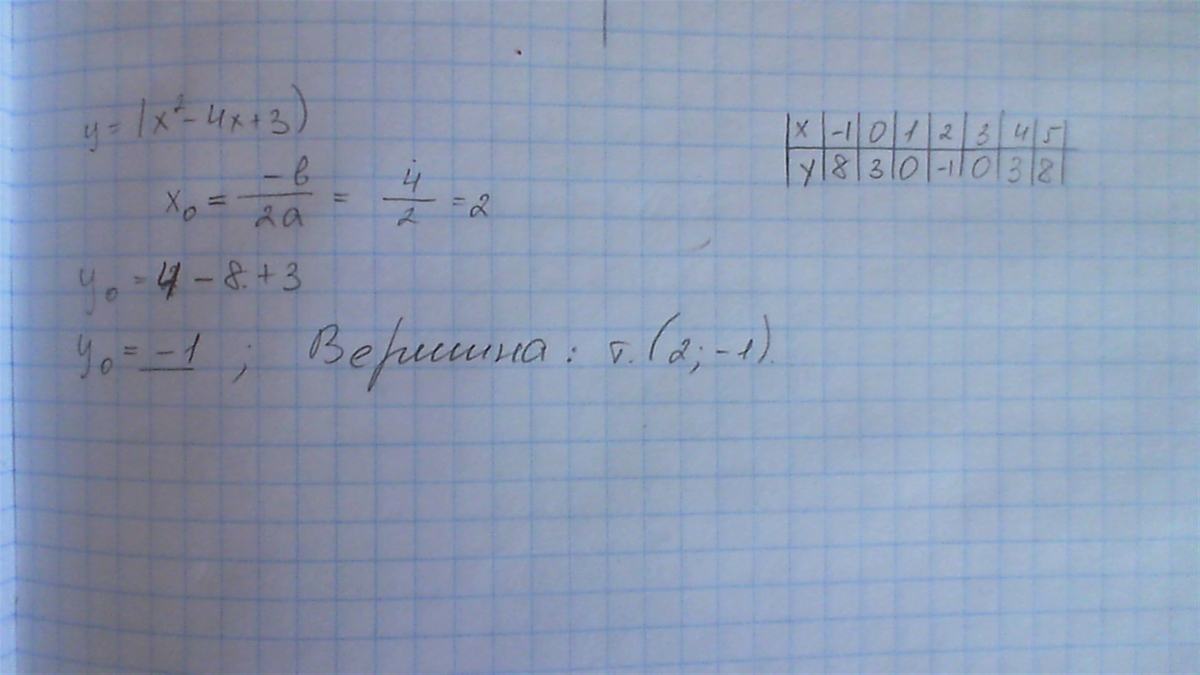 y = |x² - 4x + 3)
x₀ = -в / 2a = 4 / 2 = 2
y₀ = 4 - 8 + 3
y₀ = -1 ; Вершина : т. (2; -1).
x | -1 | 0 | 1 | 2 | 3 | 4 | 5
y | 8 | 3 | 0 | -1 | 0 | 3 | 8